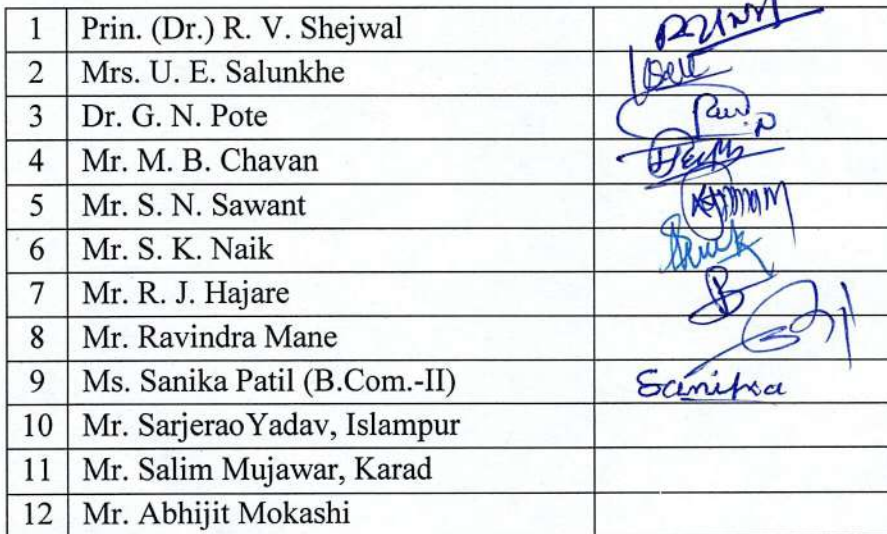 1 Prin. (Dr.) R. V. Shejwal
2 Mrs. U. E. Salunkhe
3 Dr. G. N. Pote
4 Mr. M. B. Chavan
5 Mr. S. N. Sawant
6 Mr. S. K. Naik
7 Mr. R. J. Hajare
8 Mr. Ravindra Mane
9 Ms. Sanika Patil (B.Com.-II) Sanika
10 Mr. SarjeraoYadav, Islampur
11 Mr. Salim Mujawar, Karad
12 Mr. Abhijit Mokashi